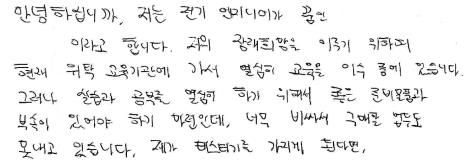 안녕하십니까, 저는 전기 엔지니어가 꿈인
이라고 합니다. 저의 장래희망을 이루기 위하여
현재 위탁 교육기관에 가서 열심히 교육을 이수 중에 있습니다.
그러나 실습과 공부를 열심히 하기 위해서 좋은 준비물품과
부속이 있어야 하기 마련인데, 너무 비싸서 구매할 엄두도
못내고 있습니다, 제가 테스터기를 가지게 된다면,